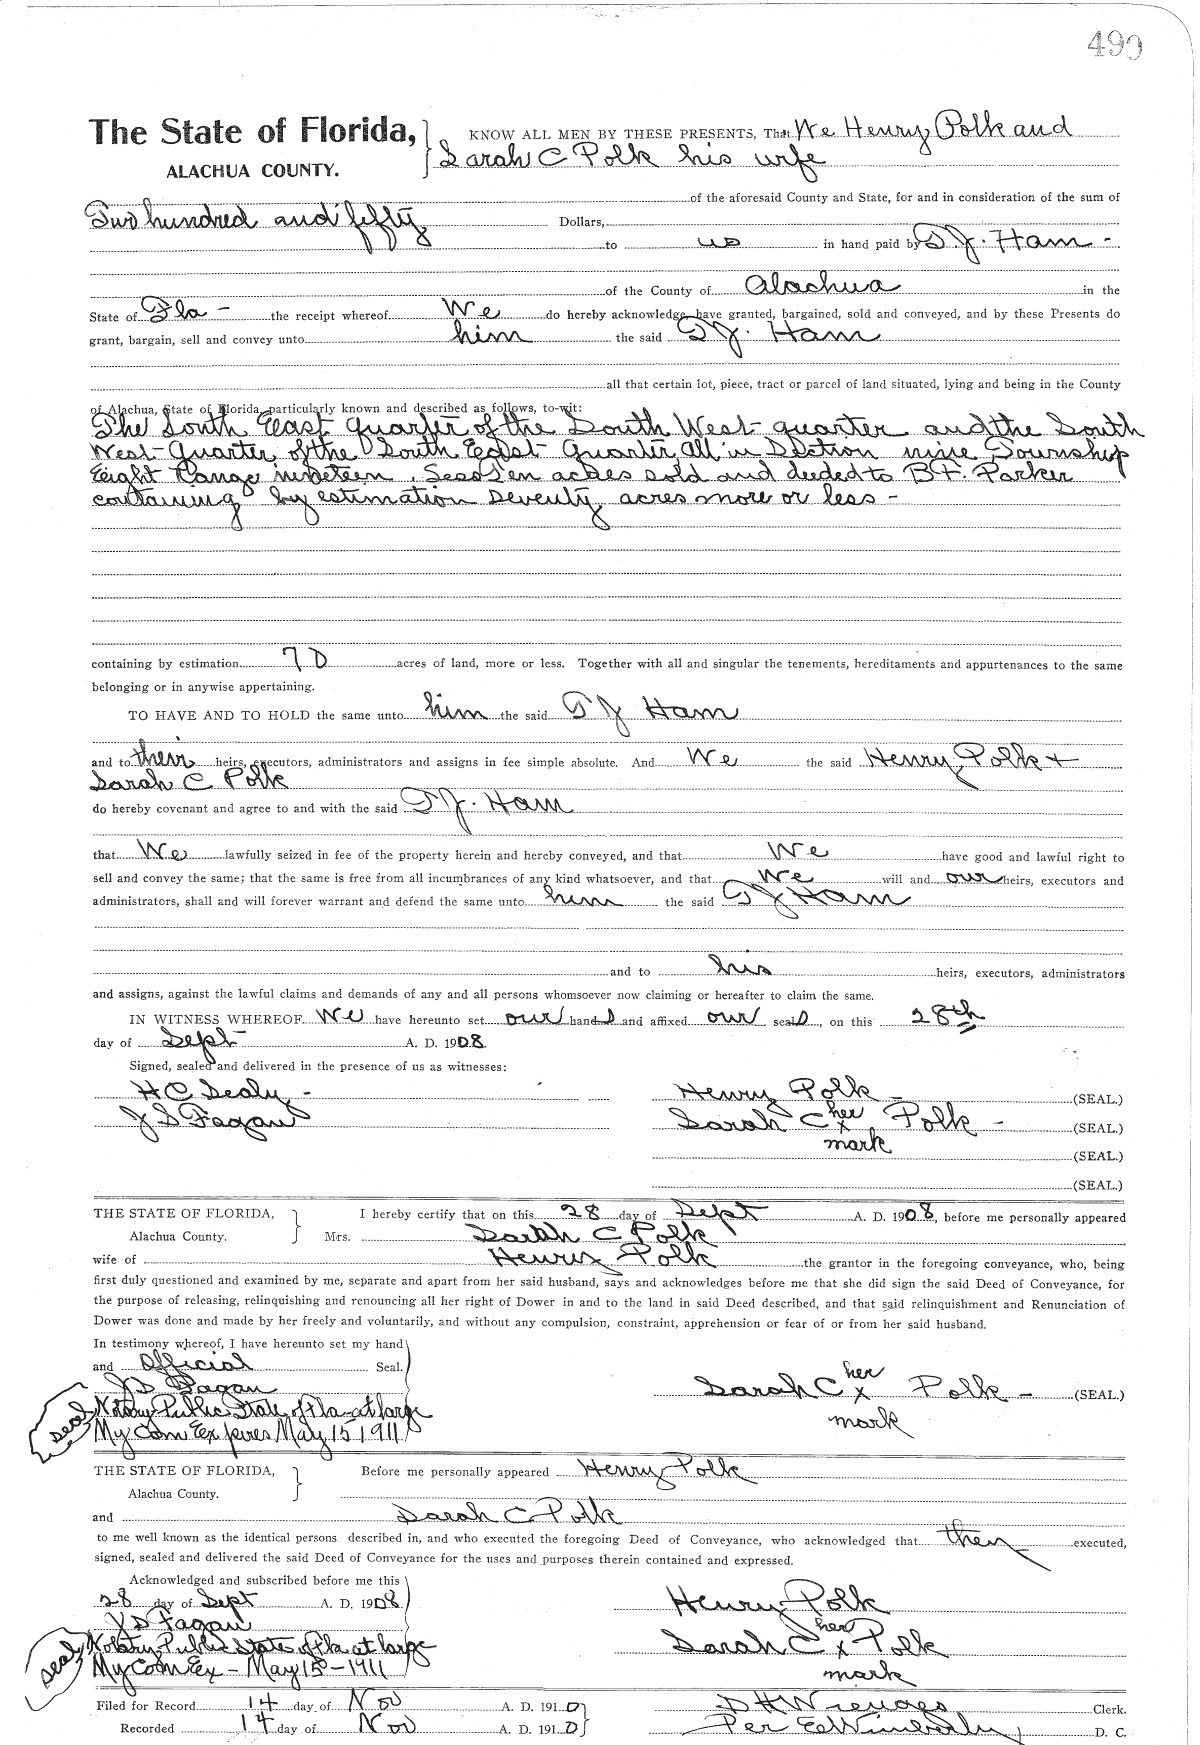 490
The State of Florida,
ALACHUA COUNTY.
KNOW ALL MEN BY THESE PRESENTS, That We Henry Polk and
Sarah C Polk his wife
of the aforesaid County and State, for and in consideration of the sum of
Two hundred and fifty Dollars,
to us in hand paid by T J. Ham -
of the County of Alachua in the
State of Fla - the receipt whereof We do hereby acknowledge, have granted, bargained, sold and conveyed, and by these Presents do
grant, bargain, sell and convey unto him the said T J. Ham
all that certain lot, piece, tract or parcel of land situated, lying and being in the County
of Alachua, State of Florida, particularly known and described as follows, to-wit:
The South East quarter of the South West quarter and the South
West Quarter of the South East Quarter All in Section nine Township
Eight Range nineteen, Less Ten acres sold and deeded to B F. Parker
containing by estimation Seventy acres more or less -
containing by estimation 70 acres of land, more or less. Together with all and singular the tenements, hereditaments and appurtenances to the same
belonging or in anywise appertaining.
TO HAVE AND TO HOLD the same unto him the said T J Ham
and to their heirs, executors, administrators and assigns in fee simple absolute. And We the said Henry Polk +
Sarah C Polk
do hereby covenant and agree to and with the said T J. Ham
that We lawfully seized in fee of the property herein and hereby conveyed, and that We have good and lawful right to
sell and convey the same; that the same is free from all incumbrances of any kind whatsoever, and that We will and our heirs, executors and
administrators, shall and will forever warrant and defend the same unto him the said T J Ham
and to his heirs, executors, administrators
and assigns, against the lawful claims and demands of any and all persons whomsoever now claiming or hereafter to claim the same.
IN WITNESS WHEREOF We have hereunto set our hands and affixed our seals, on this 28th
day of Sept A. D. 1908
Signed, sealed and delivered in the presence of us as witnesses:
H C Sealy - Henry Polk - (SEAL.)
J S Fagan Sarah C her x mark Polk - (SEAL.)
(SEAL.)
(SEAL.)
THE STATE OF FLORIDA,
Alachua County.
I hereby certify that on this 28 day of Sept A. D. 1908, before me personally appeared
Mrs. Sarah C Polk
wife of Henry Polk the grantor in the foregoing conveyance, who, being
first duly questioned and examined by me, separate and apart from her said husband, says and acknowledges before me that she did sign the said Deed of Conveyance, for
the purpose of releasing, relinquishing and renouncing all her right of Dower in and to the land in said Deed described, and that said relinquishment and Renunciation of
Dower was done and made by her freely and voluntarily, and without any compulsion, constraint, apprehension or fear of or from her said husband.
In testimony whereof, I have hereunto set my hand
and Official Seal.
J S Fagan Sarah C her x mark Polk - (SEAL.)
seal Notary Public State of Fla at large
My Com Expires May 15 1911
THE STATE OF FLORIDA,
Alachua County.
Before me personally appeared Henry Polk
and Sarah C Polk
to me well known as the identical persons described in, and who executed the foregoing Deed of Conveyance, who acknowledged that they executed,
signed, sealed and delivered the said Deed of Conveyance for the uses and purposes therein contained and expressed.
Acknowledged and subscribed before me this
28 day of Sept A. D. 1908 Henry Polk
J S Fagan
seal Notary Public State of Fla at large Sarah C her x mark Polk
My Com Ex - May 15 - 1911
Filed for Record 14 day of Nov A. D. 1910 Clerk.
Recorded 14 day of Nov A. D. 1910 Per E E Wimberly D. C.